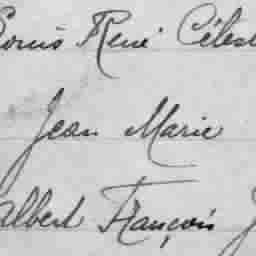 Louis René Céles
Jean Marie
Albert François J